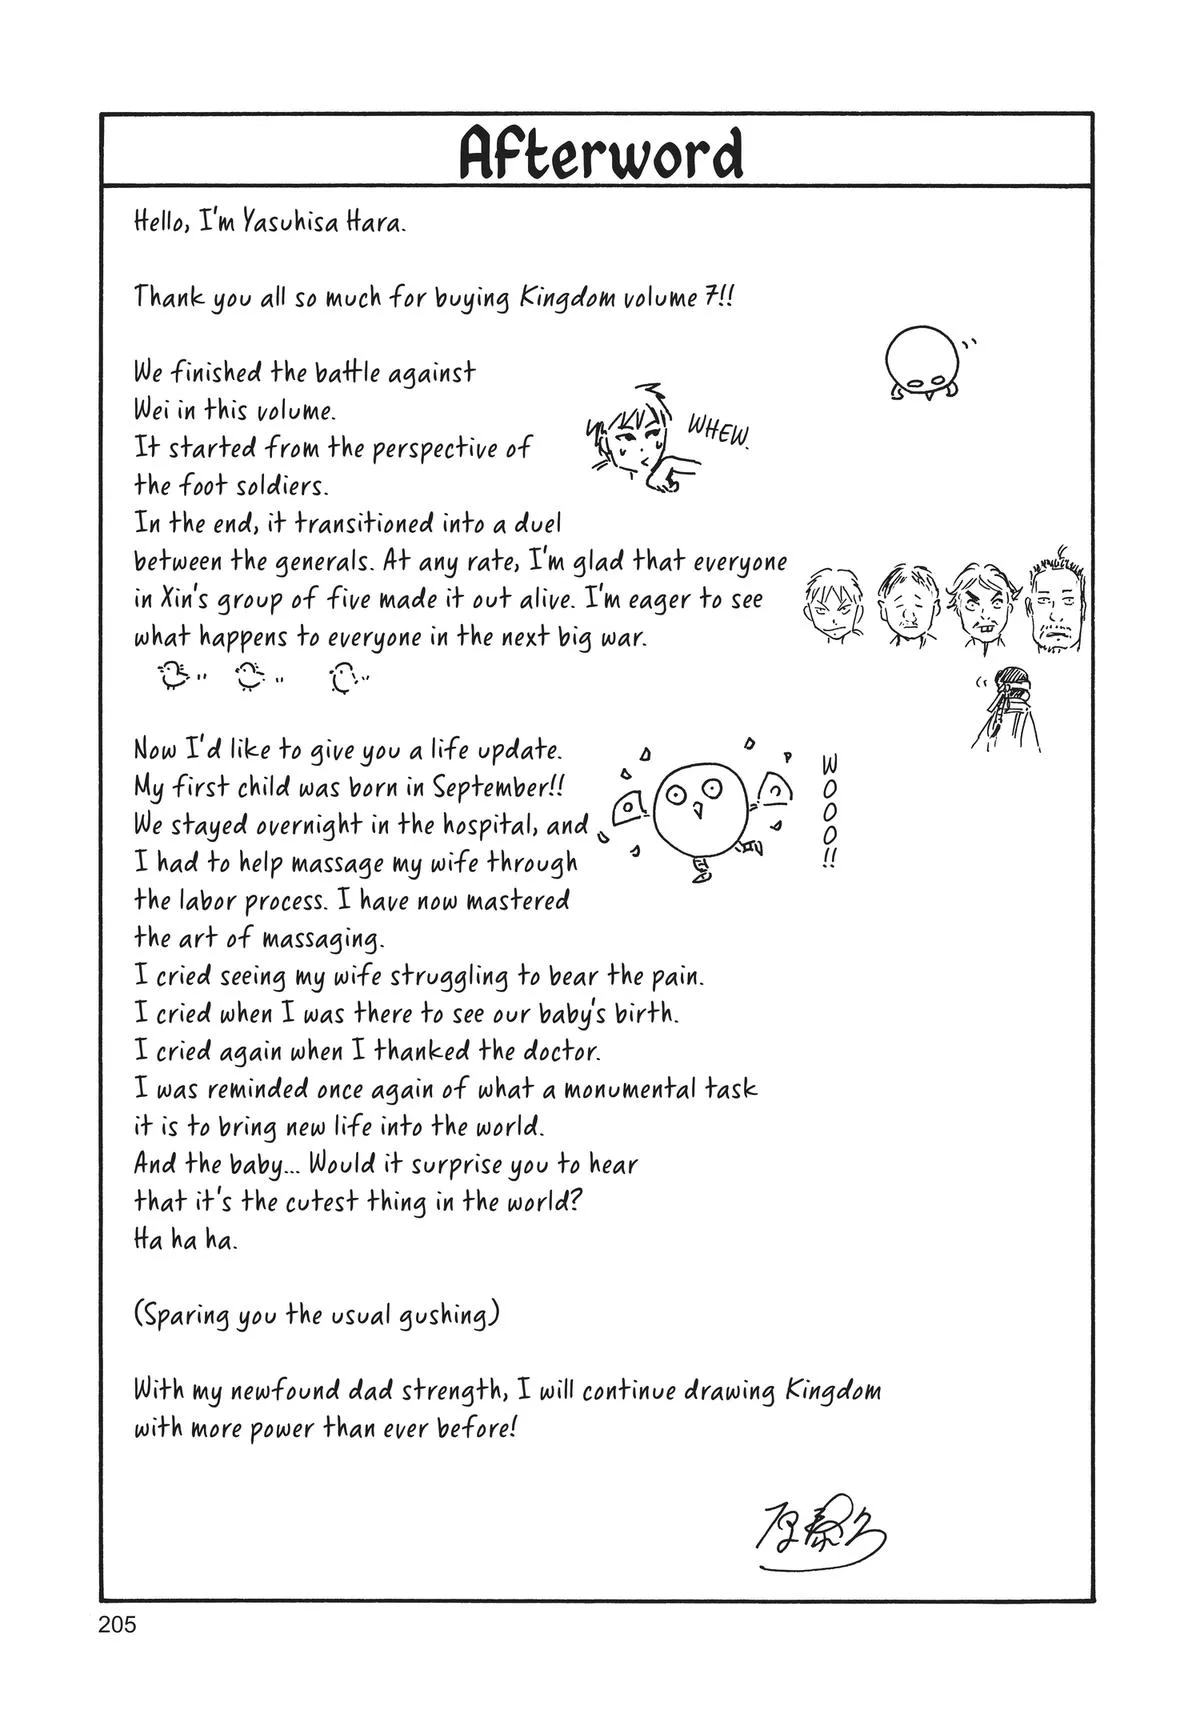 Afterword
Hello, I'm Yasuhisa Hara.
Thank you all so much for buying Kingdom volume 7!!
We finished the battle against
Wei in this volume.
It started from the perspective of
the foot soldiers.
In the end, it transitioned into a duel
between the generals. At any rate, I'm glad that everyone
in Xin's group of five made it out alive. I'm eager to see
what happens to everyone in the next big war.
WHEW.
Now I'd like to give you a life update.
My first child was born in September!!
We stayed overnight in the hospital, and
I had to help massage my wife through
the labor process. I have now mastered
the art of massaging.
I cried seeing my wife struggling to bear the pain.
I cried when I was there to see our baby's birth.
I cried again when I thanked the doctor.
I was reminded once again of what a monumental task
it is to bring new life into the world.
And the baby... Would it surprise you to hear
that it's the cutest thing in the world?
Ha ha ha.
WOOO!!
(Sparing you the usual gushing)
With my newfound dad strength, I will continue drawing Kingdom
with more power than ever before!
原泰久
205